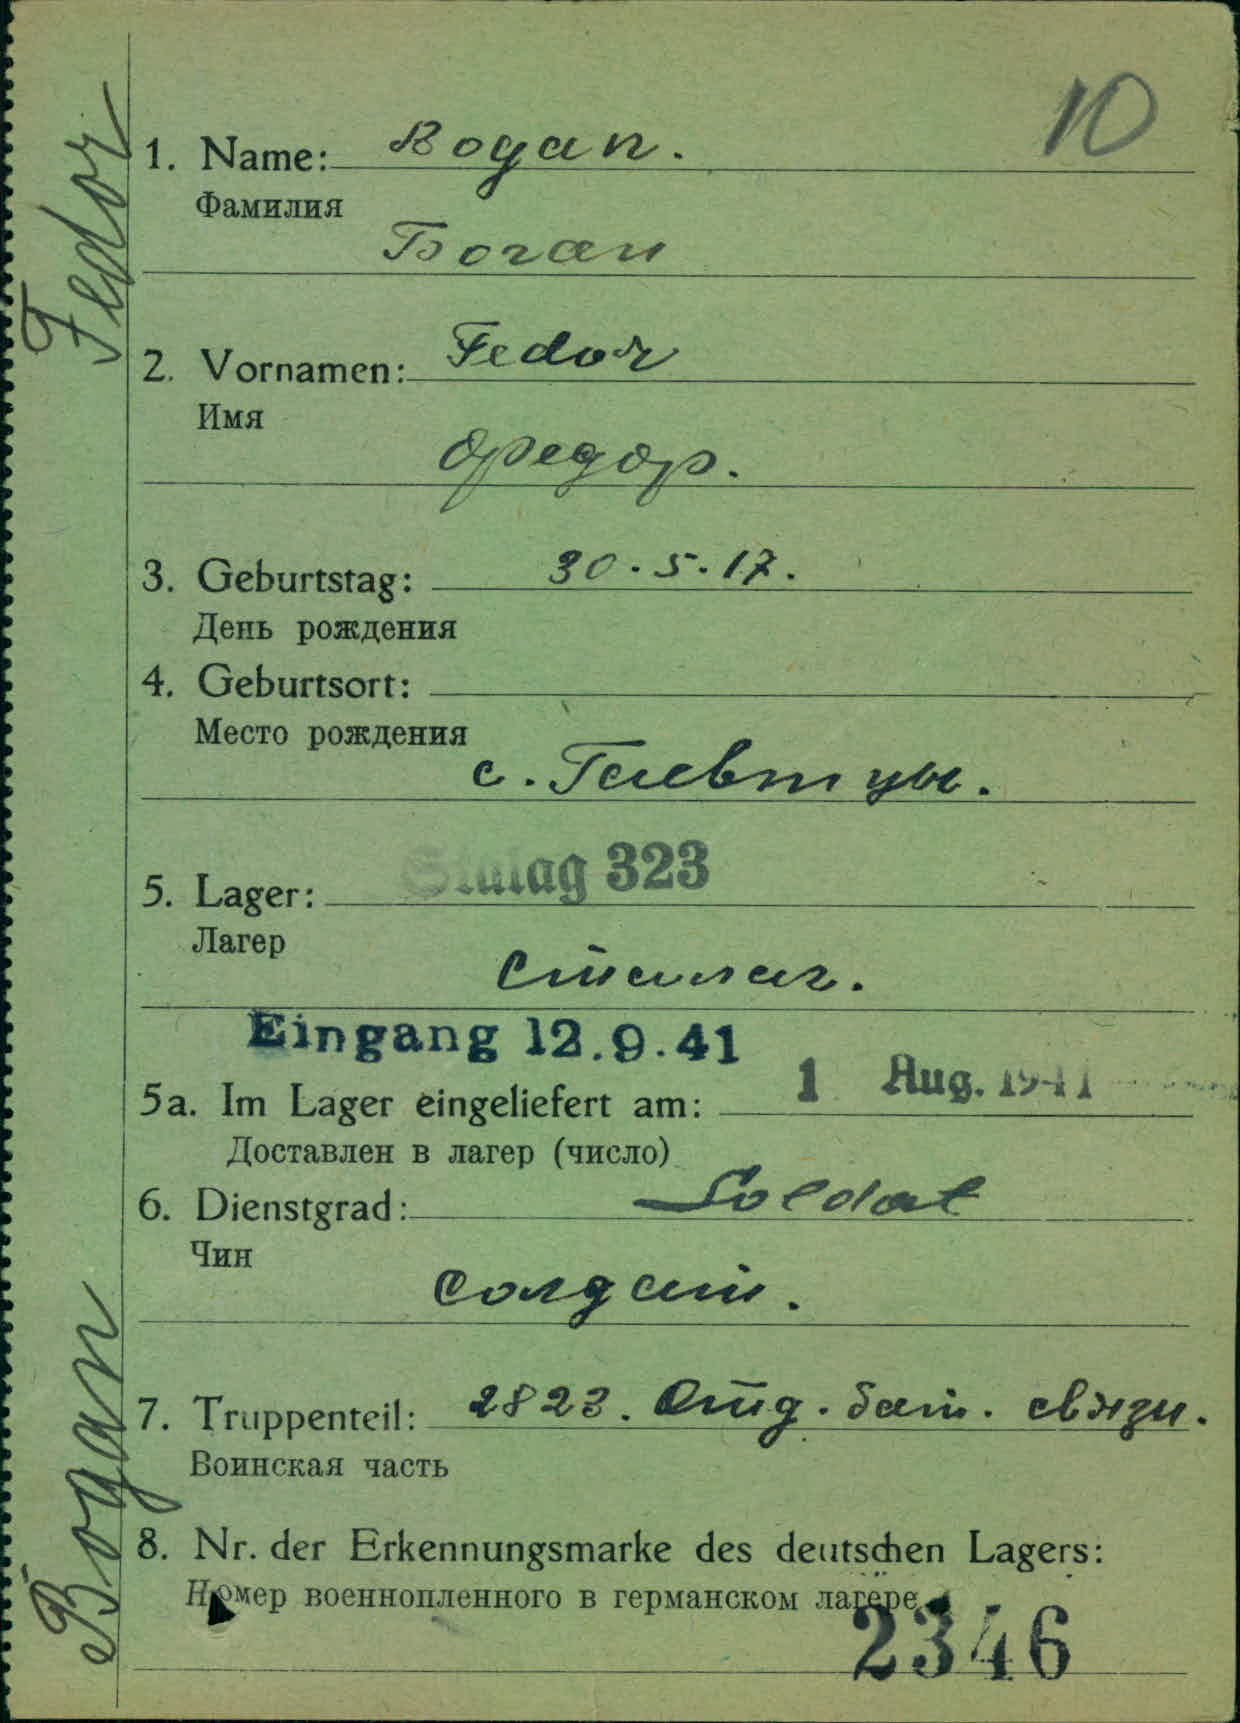 10
1. Name: Bogan.
Фамилия
Боган
2. Vornamen: Fedor
Имя
Федор.
3. Geburtstag: 30.5.17.
День рождения
4. Geburtsort:
Место рождения
с.
5. Lager: Stalag 323
Лагер
Сталаг.
Eingang 12.9.41
5a. Im Lager eingeliefert am: 1 Aug. 1941
Доставлен в лагер (число)
6. Dienstgrad: Soldat
Чин
Солдат.
7. Truppenteil: 2823. Отд. бат. связи.
Воинская часть
8. Nr. der Erkennungsmarke des deutschen Lagers:
Номер военнопленного в германском лагере
2346
Bogan Fedor